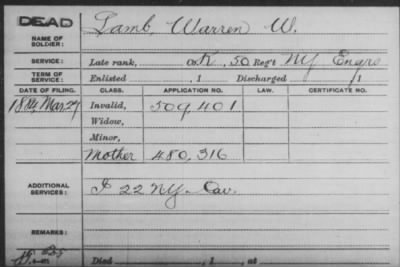 DEAD
NAME OF SOLDIER: Lamb, Warren W.
SERVICE: Late rank, Co. K, 50 Reg't NY Engrs
TERM OF SERVICE: Enlisted , 1 Discharged , 1
DATE OF FILING. CLASS. APPLICATION NO. LAW. CERTIFICATE NO.
1884, Mar. 27 Invalid, 509,401
Widow,
Minor,
Mother 480,316
ADDITIONAL SERVICES: I 22 NY. Cav.
REMARKS:
Died , 1 , at